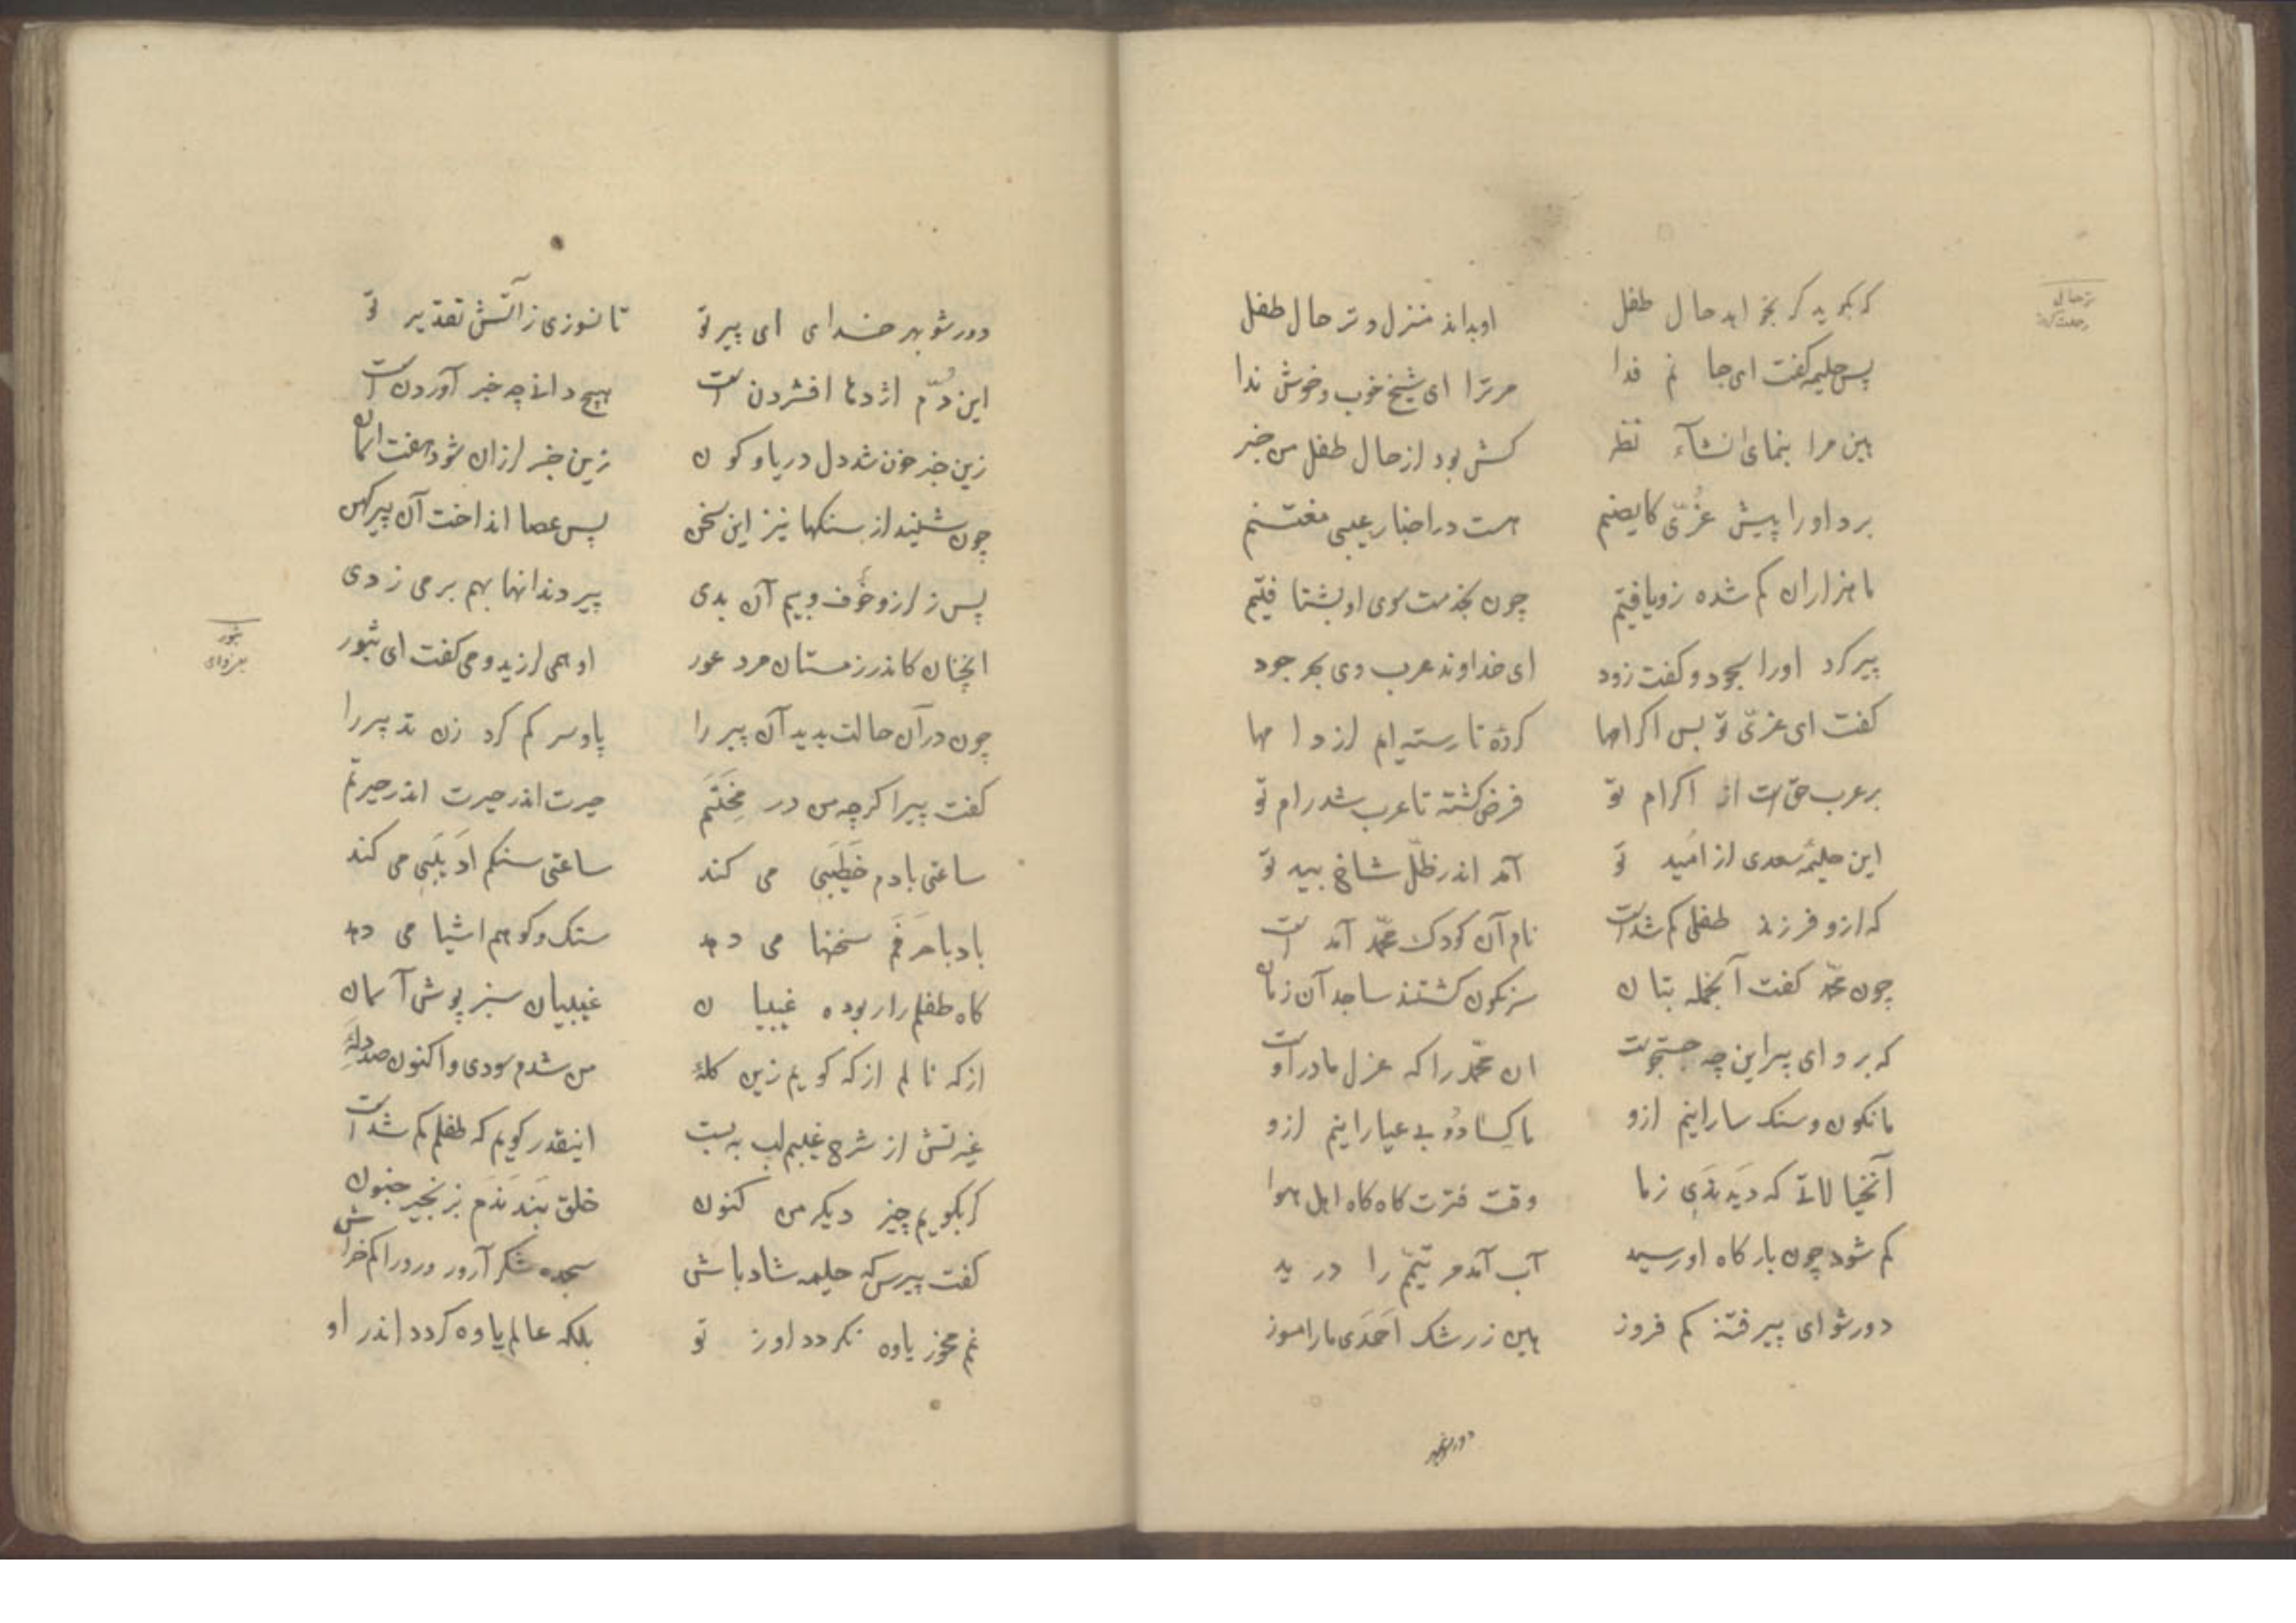 که بگوید گر بخواهد حال طفل او بداند منزل و ترحال طفل
پس حلیمه گفت ای جانم فدا مر ترا ای شیخ خوب و خوش ندا
هین مرا بنمای آن شاه نظر کش بود از حال طفل من خبر
برد او را پیش عزّی کای صنم هست در اخبار غیبی مغتنم
ما هزاران کم شده زو یافتیم چون بخدمت سوی او بشتافتیم
پیر کرد او را سجود و کفت زود ای خداوند عرب وی بحر جود
کفت ای عزّی تو بس اکرامها کردهٔ تا رسته ایم از دامها
بر عرب حق است از اکرام تو فرض کشته تا عرب شد رام تو
این حلیمهٔ سعدی از امید تو آمد اندر ظلّ شاخ بید تو
که ازو فرزند طفلی کم شدست نام آن کودک محمّد آمدست
چون محمّد کفت آنجمله بتان سرنکون کشتند ساجد آن زمان
که برو ای پیر این چه جستجوست آن محمّد را که عزل ما در اوست
ما نکون و سنکسار آییم ازو ما کساد و بی عیار آییم ازو
آن خیالاتی که دیدندی ز ما وقت فترت کاه کاه اهل هوا
کم شود چون بارکاه او رسید آب آمد مر تیمّم را درید
دور شو ای پیر فتنه کم فروز هین ز رشک احمدی ما را مسوز
ترحال
رحلت کردن
دور شو بهر
دور شو بهر خدای ای پیر تو تا نسوزی ز آتش تقدیر تو
این دُمّ اژدها افشردنست هیچ دانی چه خبر آوردنست
زین خبر خون شد دل دریا و کون زین خبر لرزان شود هفت آسمان
چون شنید از سنکها پیر این سخن پس عصا انداخت آن پیر کهن
پس ز لرز و خوف و بیم آن بدی پیر دندانها بهم بر می زدی
آنچنان کاندر زمستان مرد عور او همی لرزید و می کفت ای ثبور
چون در آن حالت بدید آن پیر را پا و سر کم کرد زن تدبیر را
کفت پیرا کرچه من در محنتم حیرت اندر حیرت اندر حیرتم
ساعتی بادم خطیبی می کند ساعتی سنکم ادیبی می کند
باد با حرفم سخنها می دهد سنک و کوهم اشیا می دهد
کاه طفلم را ربوده غیبیان غیبیان سبز پوش آسمان
از که نالم از که کویم زین کلهٔ من شدم سودی و اکنون صد دلهٔ
غیرتش از شرح غیبم لب ببست اینقدر کویم که طفلم کم شدست
کر بکویم چیز دیکر من کنون خلق بندندم بزنجیر جنون
کفت پیرش که حلیمه شاد باش سجدهٔ شکر آر و رو را کم خراش
غم مخور یاوه نکردد او ز تو بلکه عالم یاوه کردد اندر او
ثبور